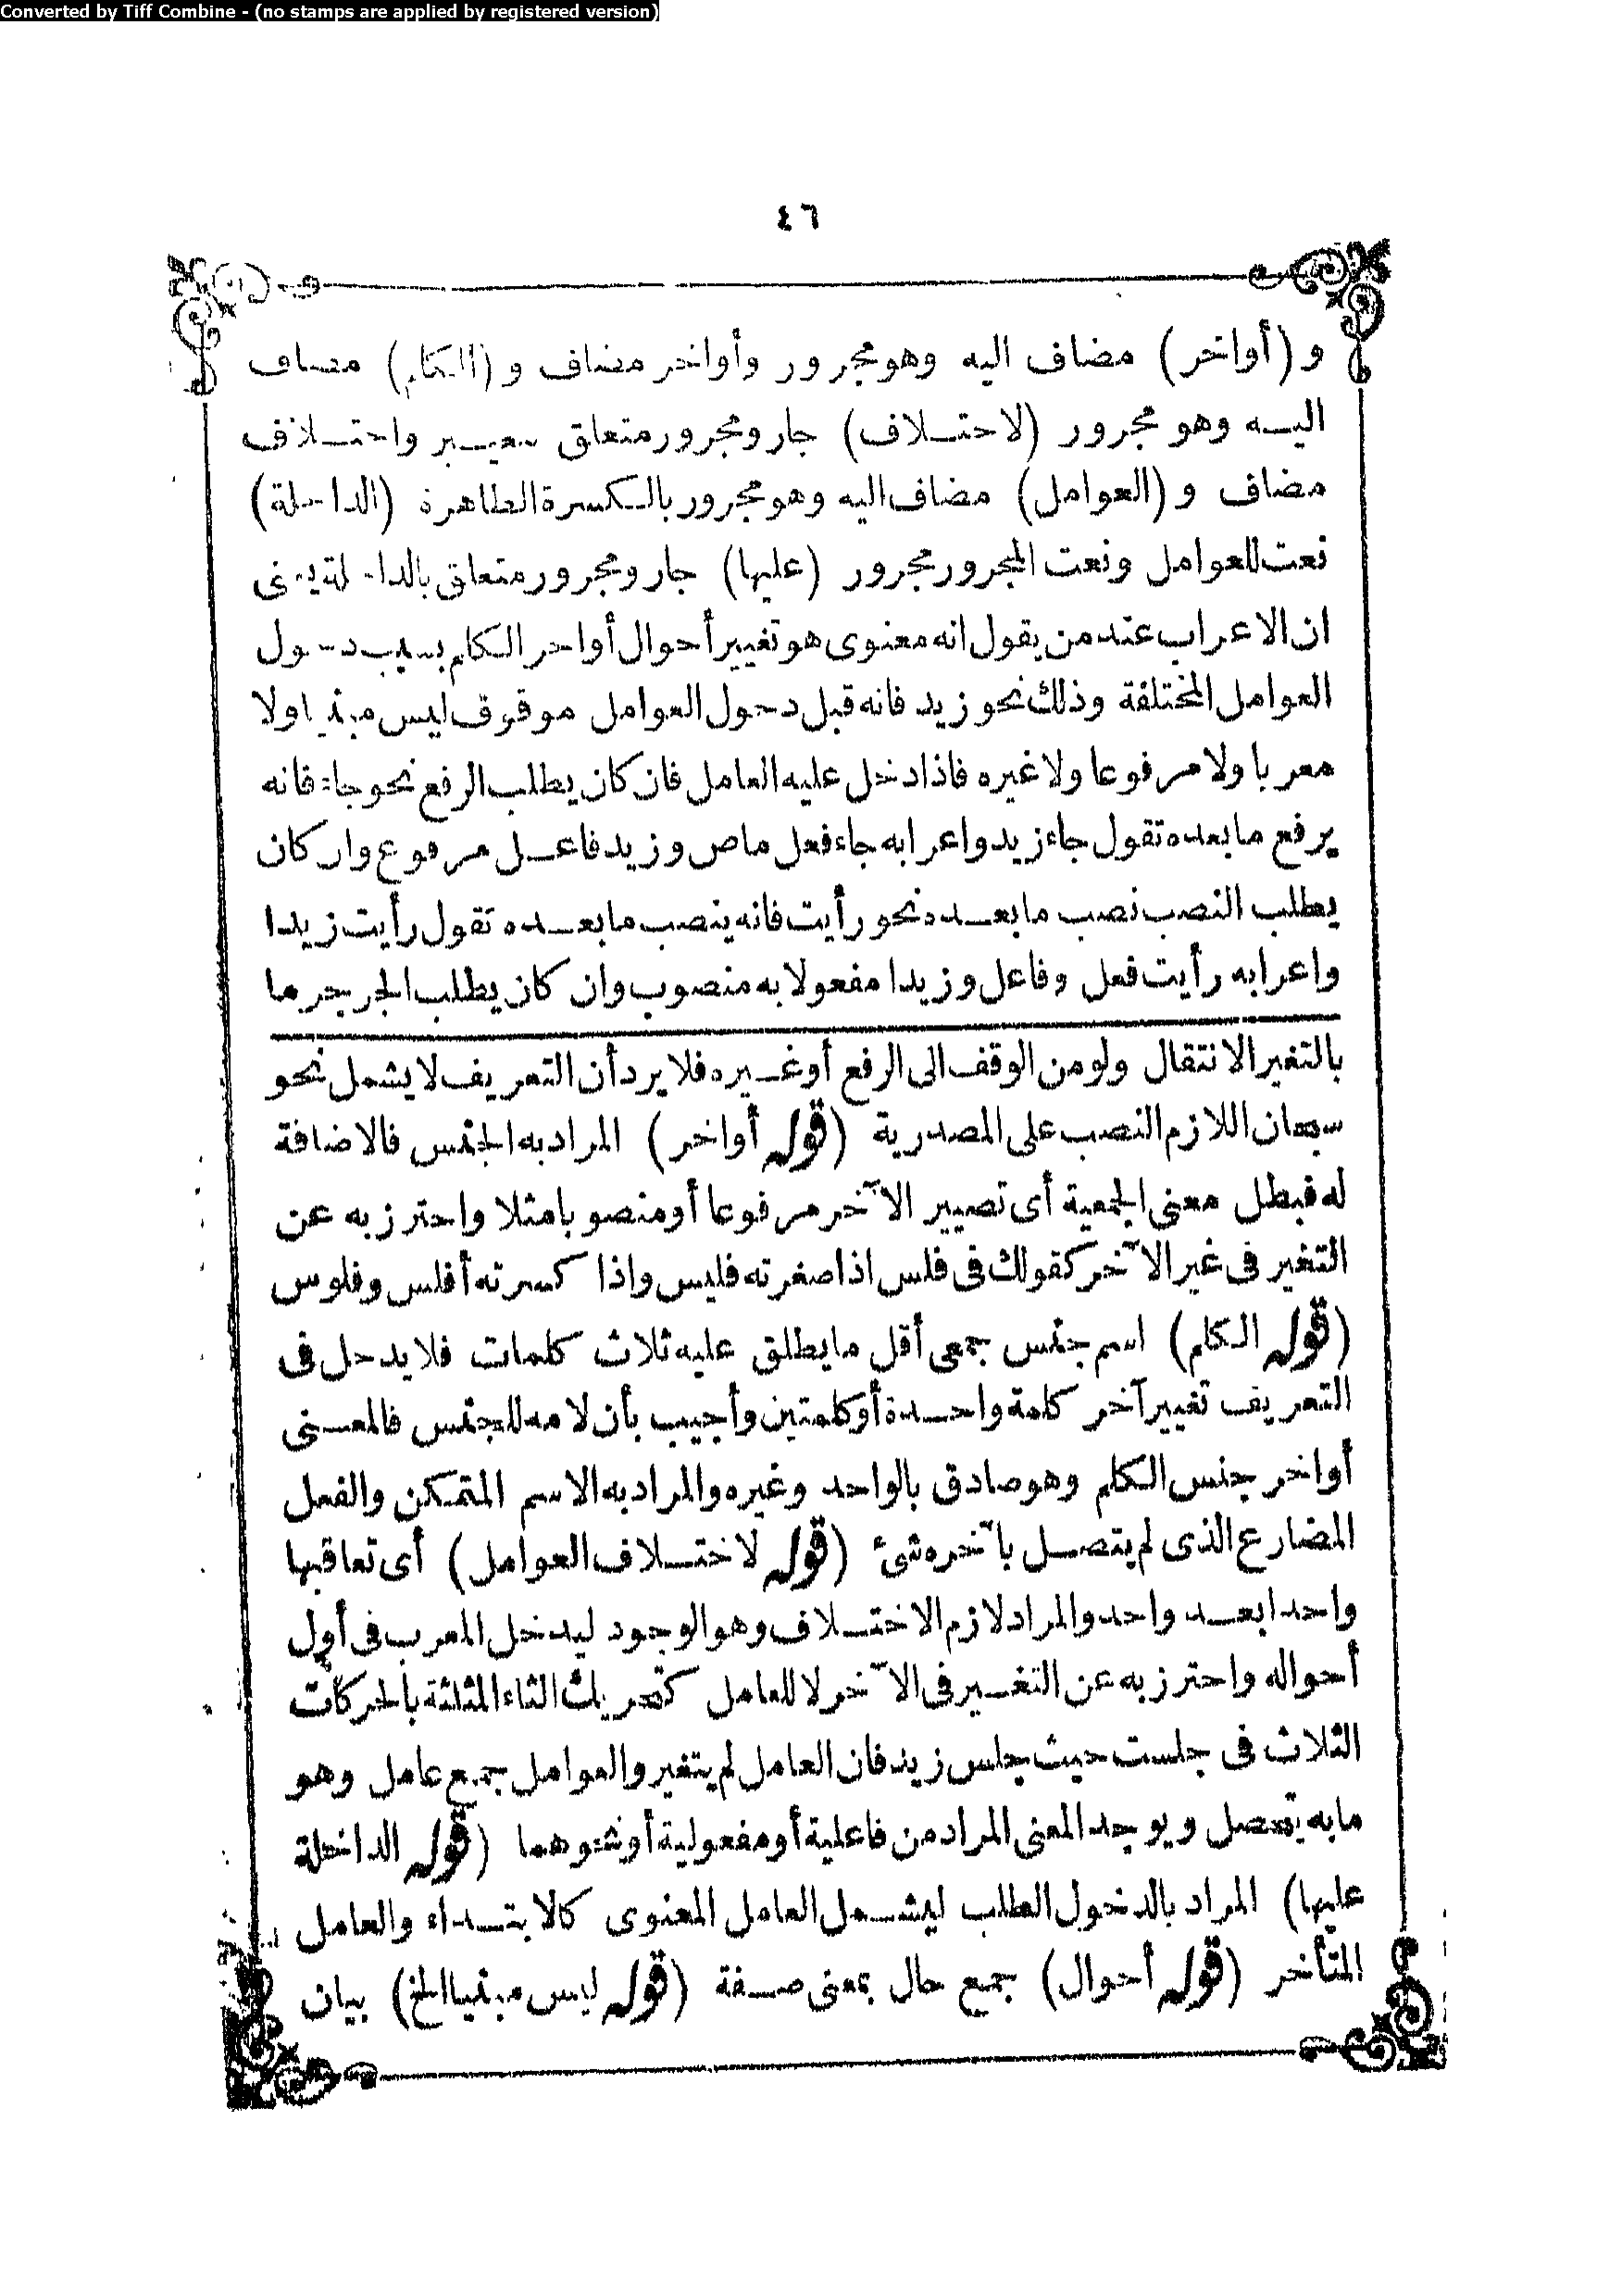 Converted by Tiff Combine - (no stamps are applied by registered version)
٤٦
و (أواخر) مضاف اليه وهو مجرور وأواخر مضاف و (الكلم) مضاف
اليه وهو مجرور (لاختلاف) جار ومجرور متعلق بتغيير واختلاف
مضاف و (العوامل) مضاف اليه وهو مجرور بالكسرة الظاهرة (الداخلة)
نعت للعوامل ونعت المجرور مجرور (عليها) جار ومجرور متعلق بالداخلة يعنى
ان الاعراب عند من يقول انه معنوى هو تغيير أحوال أواخر الكلم بسبب دخول
العوامل المختلفة وذلك نحو زيد فانه قبل دخول العوامل موقوف ليس مبنيا ولا
معربا ولا مرفوعا ولا غيره فاذا دخل عليه العامل فان كان يطلب الرفع نحو جاء فانه
يرفع ما بعده تقول جاء زيد واعرابه جاء فعل ماض وزيد فاعل مرفوع وان كان
يطلب النصب نصب ما بعده نحو رأيت فانه ينصب ما بعده تقول رأيت زيدا
واعرابه رأيت فعل وفاعل وزيدا مفعولا به منصوب وان كان يطلب الجر يجر ما
بالتغير الانتقال ولو من الوقف الى الرفع أو غيره فلا يرد أن التعريف لا يشمل نحو
سبحان اللازم النصب على المصدرية (قوله أواخر) المراد به الجنس فالاضافة
له فبطل معنى الجمعية أى تصيير الآخر مرفوعا أو منصوبا مثلا واحترز به عن
التغير فى غير الآخر كقولك فى فلس اذا صغرته فليس واذا كسرته أفلس وفلوس
(قوله الكلم) اسم جنس جمعى أقل ما يطلق عليه ثلاث كلمات فلا يدخل فى
التعريف تغيير آخر كلمة واحدة أو كلمتين وأجيب بأن لامه للجنس فالمعنى
أواخر جنس الكلم وهو صادق بالواحد وغيره والمراد به الاسم المتمكن والفعل
المضارع الذى لم يتصل بآخره شئ (قوله لاختلاف العوامل) أى تعاقبها
واحدا بعد واحد والمراد لازم الاختلاف وهو الوجود ليدخل المعرب فى أول
أحواله واحترز به عن التغير فى الآخر لا للعامل كتحريك الثاء المثلثة بالحركات
الثلاث فى جلست حيث جلس زيد فان العامل لم يتغير والعوامل جمع عامل وهو
ما به يتحصل ويوجد المعنى المراد من فاعلية أو مفعولية أو نحوهما (قوله الداخلة
عليها) المراد بالدخول الطلب ليشمل العامل المعنوى كالابتداء والعامل
المتأخر (قوله أحوال) جمع حال بمعنى صفة (قوله ليس مبنيا الخ) بيان